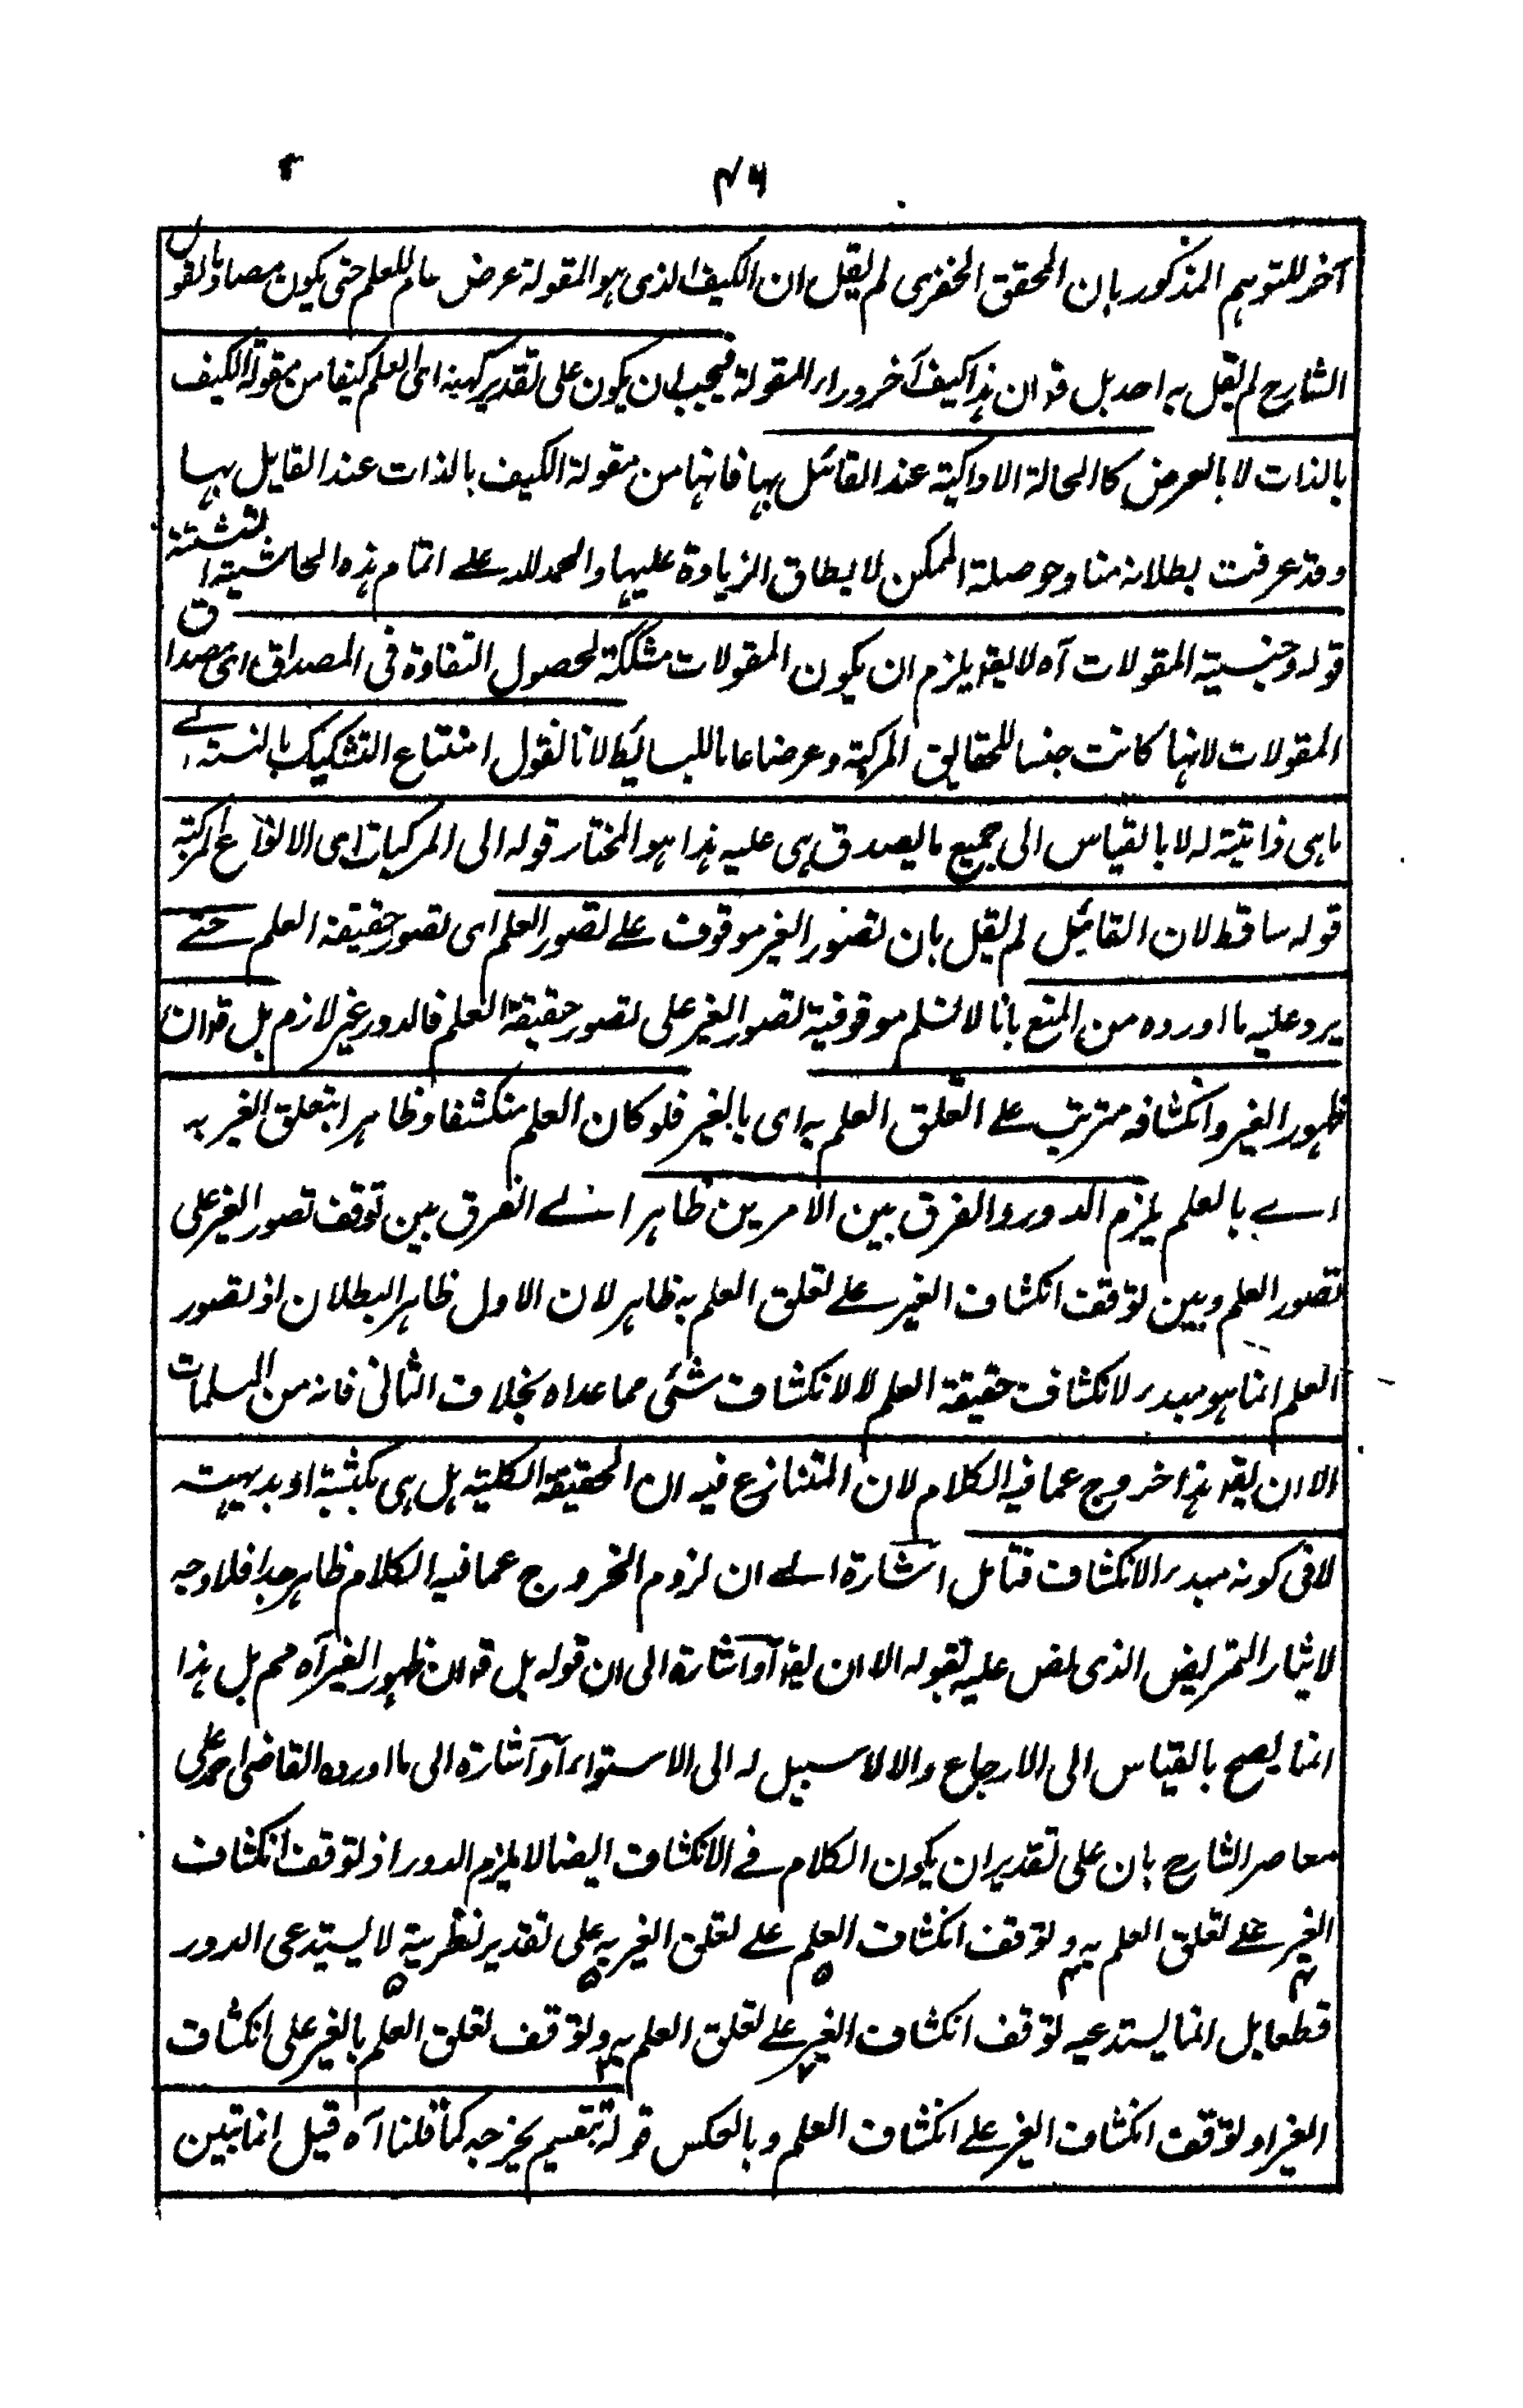 ۴۶
آخر للتوهم المذكور بان المحقق الخفرى لم يقل ان الكيف الذى هو المقولة عرض عام للعلم حتى يكون مصادما لقول
الشارح لم يقل به احد بل قد ان هذا كيف آخر وراء المقولة فيجب ان يكون على تقدير كونه اى العلم كيفا من مقولة الكيف
بالذات لا بالعرض كالحالة الادراكية عند القائل بها فانها من مقولة الكيف بالذات عند القايل بها
وقد عرفت بطلانه منا وحوصلة الممكن لا يطاق الزيادة عليها والحمد لله على اتمام هذه الحاشية
قوله وجنسية المقولات آه لا يقو يلزم ان يكون المقولات مشككة لحصول التفاوة فى المصداق اى مصداق
المقولات لانها كانت جنسا للحقايق المركبة وعرضا عاما للبسايط لانا نقول امتناع التشكيك بالنسبة الى
ما هى ذاتية له لا بالقياس الى جميع ما يصدق هى عليه هذا هو المختار قوله الى المركبات اى الانواع المركبة
قوله ساقط لان القائيل لم يقل بان تصور الغير موقوف على تصور العلم اى تصور حقيقة العلم حتے
يرد عليه ما اورده من المنع بانا لا نسلم موقوفية تصور الغير على تصور حقيقة العلم فالدور غير لازم بل قو ان
ظهور الغير وانكشافه مترتب على التعلق العلم به اى بالغير فلو كان العلم منكشفا وظاهرا بتعلق الغير به
اے بالعلم يلزم الدور والفرق بين الامرين ظاهر اے الفرق بين توقف تصور الغير على
تصور العلم وبين توقف انكشاف الغير على تعلق العلم به ظاهر لان الاول ظاهر البطلان اذ تصور
العلم انما هو مبدء لانكشاف حقيقة العلم لا لانكشاف شئى مما عداه بخلاف الثانى فانه من المسلمات
الا ان يقو هذا خروج عما فيه الكلام لان المتنازع فيه ان الحقيقة الكلية هل هى مكتسبة او بديهية
لا فى كونه مبدء الانكشاف فتامل اشارة الے ان لزوم الخروج عما فيه الكلام ظاهر جدا فلا وجه
لايثار التمريض الذى نص عليه بقوله الا ان يقو آه او اشارة الى ان قوله بل قو ان ظهور الغير آه مم بل هذا
انما يصح بالقياس الى الارجاع والا لا سبيل له الى الاستواء آه او اشارة الى ما اورده القاضى احمد على
معاصر الشارح بان على تقدير ان يكون الكلام فے الانكشاف ايضا لا يلزم الدور اذ توقف انكشاف
الغير على تعلق العلم به وتوقف انكشاف العلم على تعلق الغير به على تقدير نظرية لا يستدعى الدور
قطعا بل انما يستدعيه توقف انكشاف الغير على تعلق العلم به وتوقف تعلق العلم بالغير على انكشاف
الغير او توقف انكشاف الغير على انكشاف العلم وبالعكس قوله تقسيم يخرجه كما قلنا آه قيل انما تبين